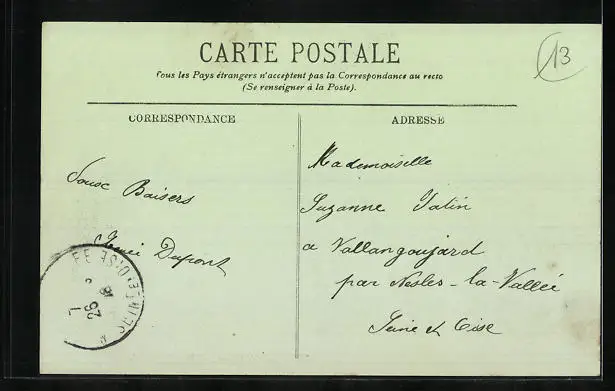 CARTE POSTALE
13
Tous les Pays étrangers n'acceptent pas la Correspondance au recto
(Se renseigner à la Poste).
CORRESPONDANCE
ADRESSE
Baisers
Dupont
Mademoiselle
Suzanne
a Vallangoujard
par Nesles-la-Vallée
Seine et Oise
SEINE-ET-OISE
26